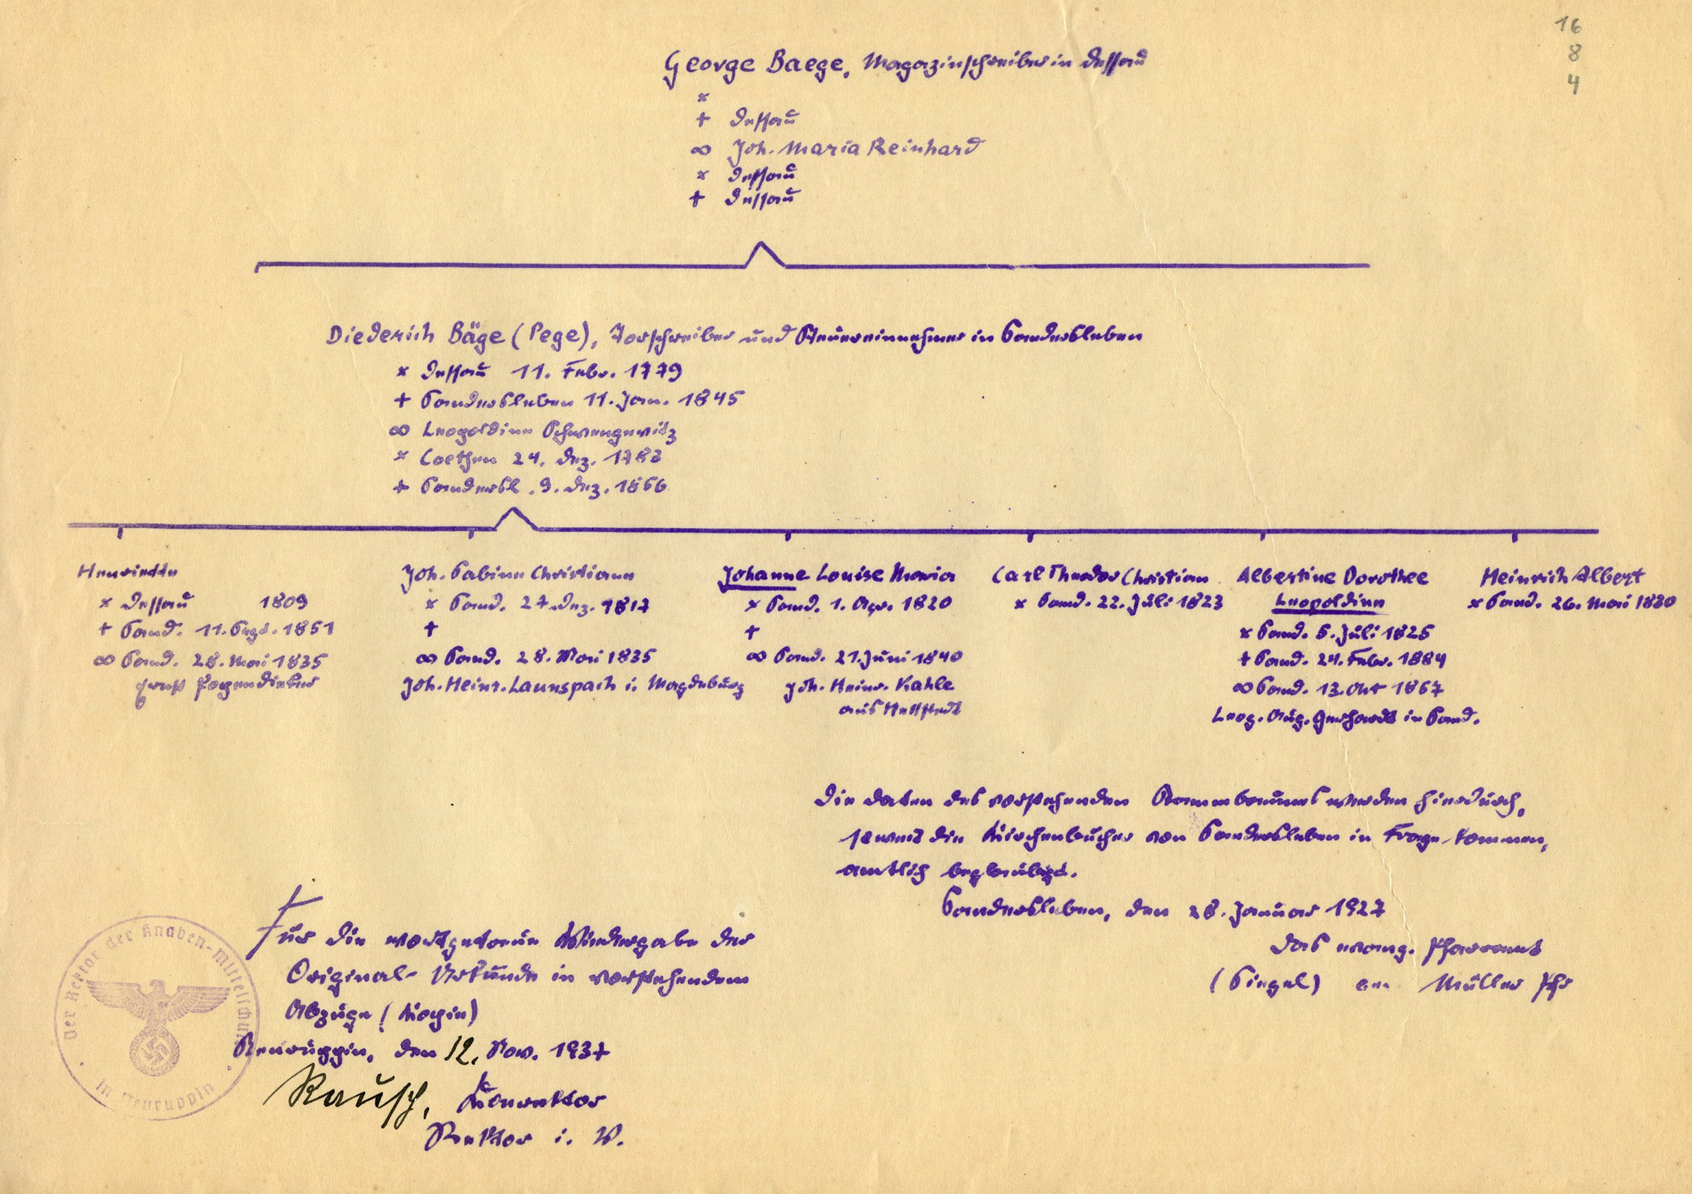 16
8
4
George Baege, Magazinschreiber in Dessau
×
+ Dessau
∞ Joh. Maria Reinhard
× Dessau
+ Dessau
Diederich Bäge (Pege), Torschreiber und Steuereinnehmer in Sandersleben
× Dessau 11. Febr. 1779
+ Sandersleben 11. Jan. 1845
∞ Leopoldine Schwengewitz
× Coethen 24. Dez. 1783
+ Sandersl. 9. Dez. 1866
Henriette
× Dessau 1809
+ Sand. 11. Sept. 1851
∞ Sand. 28. Mai 1835
Ernst
Joh. Sabine Christiane
× Sand. 27. Dez. 1817
+
∞ Sand. 28. Mai 1835
Joh. Heinr. Launspach i. Magdeburg
Johanne Louise Maria
× Sand. 1. Apr. 1820
+
∞ Sand. 21. Juni 1840
Joh. Heinr. Kahle
aus Hettstedt
Carl Theodor Christian
× Sand. 22. Juli 1823
Albertine Dorothee
Leopoldine
× Sand. 5. Juli 1825
+ Sand. 24. Febr. 1884
∞ Sand. 13. Okt 1867
Leop. Aug. Gerhardt in Sand.
Heinrich Albert
× Sand. 26. Mai 1830
Die Daten des vorstehenden Stammbaumes werden hierdurch,
soweit die Kirchenbücher von Sandersleben in Frage kommen,
amtlich beglaubigt.
Sandersleben, den 28. Januar 1927
Das evang. Pfarramt
(Siegel) gez. Müller Pfr
Für die wortgetreue Wiedergabe der
Original-Urkunde in vorstehendem
Abzuge (Kopie)
Neuruppin, den 12. Nov. 1937
Rausch, Konrektor
Rektor i. V.
Der Rektor der Knaben-Mittelschule
in Neuruppin